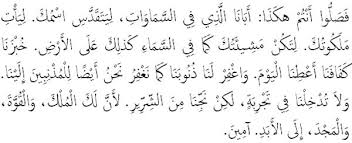 فَصَلُّوا أَنْتُمْ هكَذَا: أَبَانَا الَّذِي فِي السَّمَاوَاتِ، لِيَتَقَدَّسِ اسْمُكَ. لِيَأْتِ
مَلَكُوتُكَ. لِتَكُنْ مَشِيئَتُكَ كَمَا فِي السَّمَاءِ كَذلِكَ عَلَى الأَرْضِ. خُبْزَنَا
كَفَافَنَا أَعْطِنَا الْيَوْمَ. وَاغْفِرْ لَنَا ذُنُوبَنَا كَمَا نَغْفِرُ نَحْنُ أَيْضًا لِلْمُذْنِبِينَ إِلَيْنَا.
وَلاَ تُدْخِلْنَا فِي تَجْرِبَةٍ، لكِنْ نَجِّنَا مِنَ الشِّرِّيرِ. لأَنَّ لَكَ الْمُلْكَ، وَالْقُوَّةَ،
وَالْمَجْدَ، إِلَى الأَبَدِ. آمِينَ.